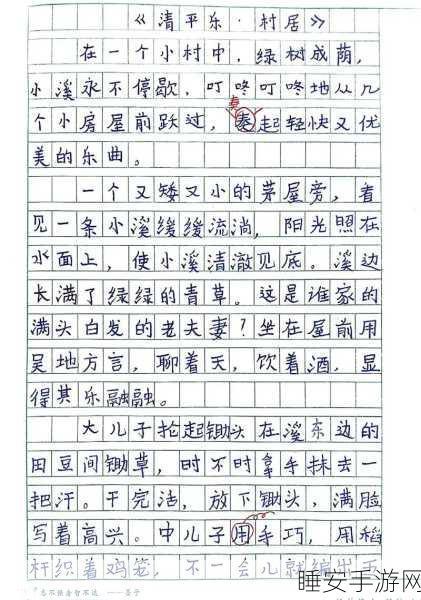 《清平乐·村居》
在一个小村中，绿树成荫，
小溪永不停歇，叮咚叮咚地从几
个小房屋前跃过，奏起轻快又优
美的乐曲。
一个又矮又小的茅屋旁，看
见一条小溪缓缓流淌，阳光照在
水面上，使小溪清澈见底。溪边
长满了绿绿的青草。这是谁家的
满头白发的老夫妻？坐在屋前用
吴地方言，聊着天，饮着酒，显
得其乐融融。
大儿子抡起锄头在溪东边的
田豆间锄草，时不时拿手抹去一
把汗。干完活，放下锄头，满脸
写着高兴。中儿子用手巧，用稻
杆织着鸡笼，不一会儿就编出
睡安手游网